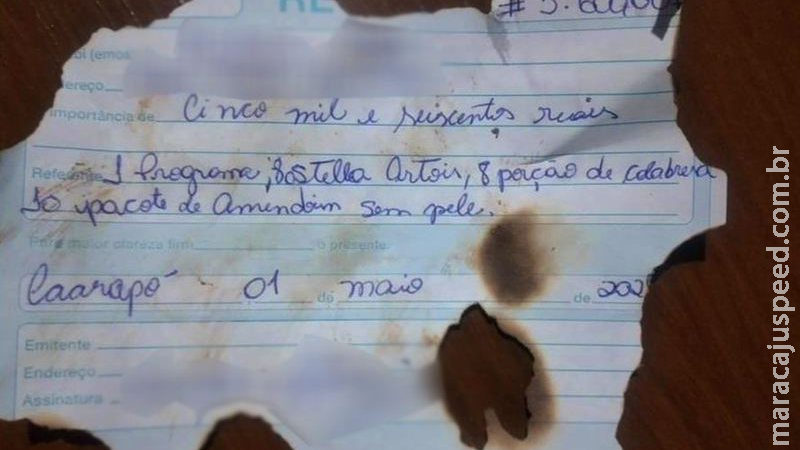 RE
# 5.600,00
bi (emos
ereço
importância de Cinco mil e seiscentos reais
Referente 1 Programa, 80 Stella Artois, 8 porção de calabresa
10 pacote de Amendoim sem pele.
Para maior clareza firm o presente
Caarapó 01 de maio de 202
Emitente
Endereço
Assinatura
maracajuspeed.com.br